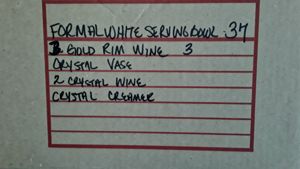 FORMAL WHITE SERVING BOWL .37
GOLD RIM WINE 3
CRYSTAL VASE
2 CRYSTAL WINE
CRYSTAL CREAMER